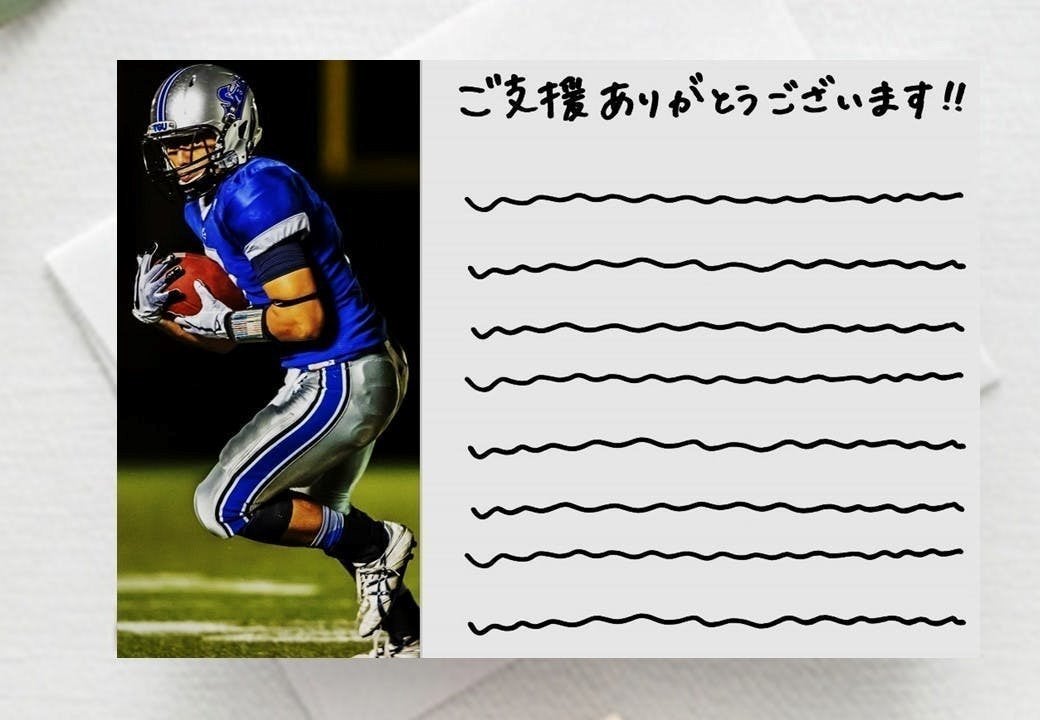 ご支援ありがとうございます!!
TSU